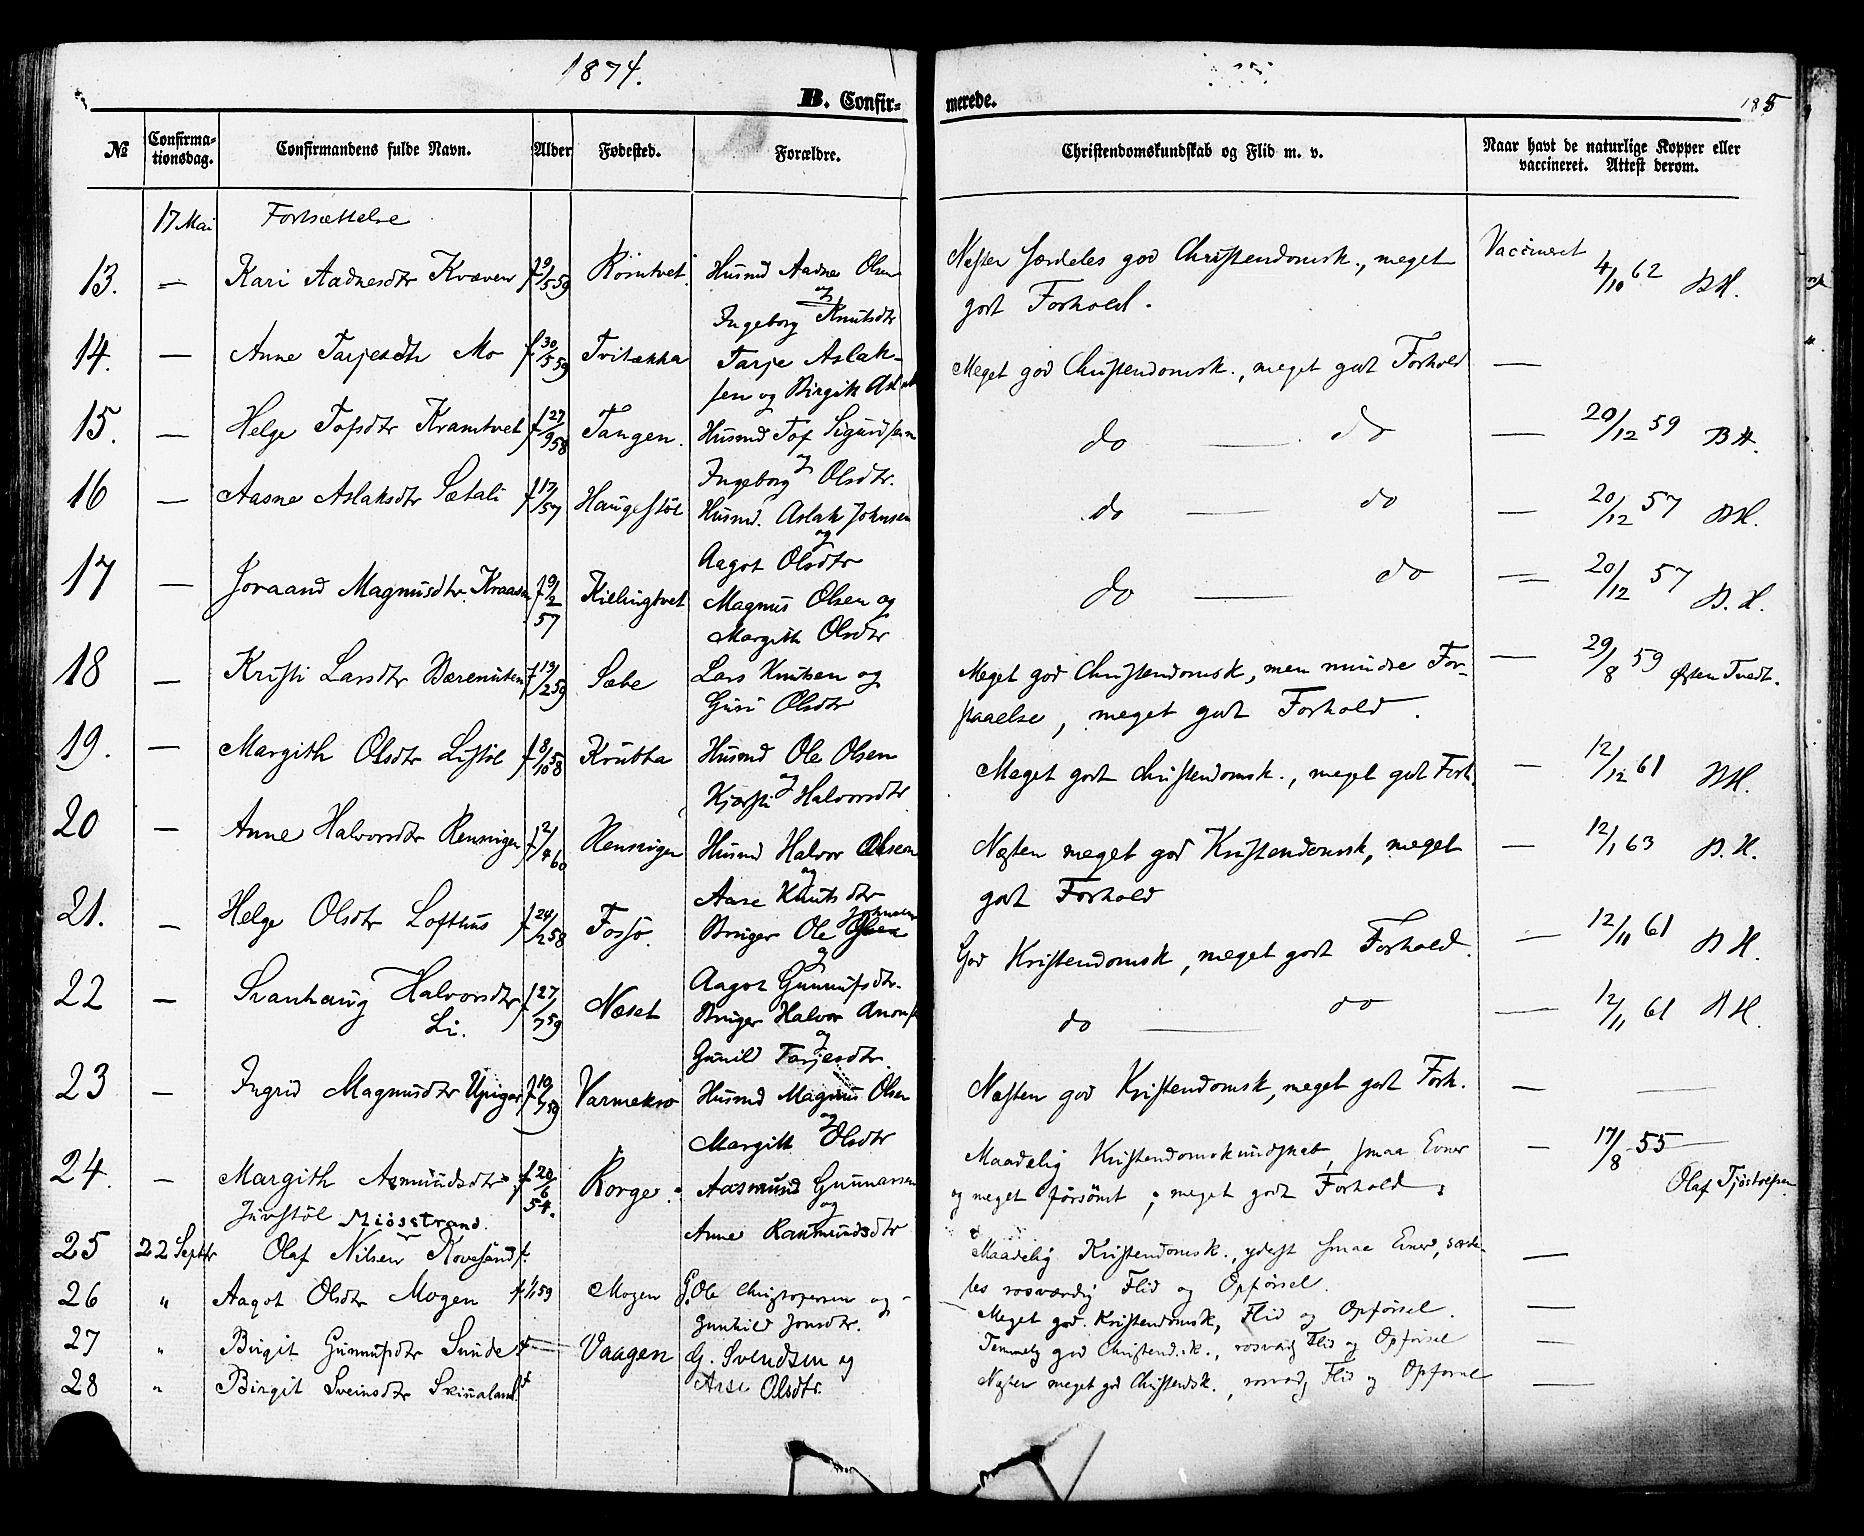 1874.
B. Confir-
merede.
185
№
Confirma-
tionsdag.
Confirmandens fulde Navn.
Alder
Fødested.
Forældre.
Christendomskundskab og Flid m. v.
Naar havt de naturlige Kopper eller
vaccineret. Attest derom.
17 Mai Fortsættelse
13. — Kari Aadnesdtr Kvæven f 9/5 59 Rorntvet Husmd Aadne Olsen
og
Ingeborg Knutsdtr
Næsten særdeles god Christendomsk., meget
godt Forhold.
Vaccineret 4/10 62 BH.
14. — Anne Tarjesdtr Mo f 30/5 59 Tvitækka Tarje Aslak-
sen og Birgith
Meget god Christendomsk., meget godt Forhold —
15. — Helge Tofsdtr Kramtvet f 27/9 58 Tangen. Husmd Tof Sigurdsen
og
Ingeborg Olsdtr.
do — do — 20/12 59 BH.
16 — Aasne Aslaksdtr Sætali f 17/ 57 Haugestöl Husmd. Aslak Johnsen
og
Aagot Olsdtr
do — do — 20/12 57 BH.
17 — Joraand Magnusdtr Kraasa f 9/2 57 Kielingtvet Magnus Olsen og
Margith Olsdtr
do — do — 20/12 57 B. H.
18 — Kristi Larsdtr Bærenuten f 19/2 59 Sæbe Lars Knutsen og
Guri Olsdtr
Meget god Christendomsk, men mindre For-
staaelse, meget godt Forhold.
— 29/8 59 Østen Tvedt.
19. — Margith Olsdtr Listöl f 8/10 58 Krubba Husmd Ole Olsen
og
Kjersti Halvorsdtr
Meget godt Christendomsk., meget godt Forh. — 12/12 61 BH.
20 — Anne Halvorsdtr Rensvigen f 2/4 60 Rensvigen Husmd Halvor Olsen
og
Aase Knutsdtr
Næsten meget god Kristendomsk, meget
godt Forhold
— 12/1 63 B. H.
21. — Helge Olsdtr Lofthus f 24/2 58 Fossø. Bruger Ole Johnsen
og
Aagot Gunnulfsdtr.
God Kristendomsk, meget godt Forhold. — 12/11 61 BH.
22 — Svanhaug Halvorsdtr f 27/7 59 Næset Bruger Halvor
Li.
og
Gunild Tarjesdtr.
do — do — 12/11 61 BH.
23 — Ingrid Magnusdtr f 19/7 59 Varmekro Husmd Magnus Olsen
og
Margith Olsdtr
Næsten god Kristendomsk, meget godt Forh. — —
24. — Margith Asmundsdtr f 20/6 54. Korge. Aasmund Gunnarsen
Juvstöl Miösstrand.
og
Anne Rasmundsdtr
Maadelig Kristendomskundskab, smaa Evner
og meget forsömt, meget godt Forhold.
— 17/8 55 —
Olaf Tjöstolfsen
25 22 Septbr Olaf Nilsen Kovesand f.
Maadelig Kristendomsk., yderst smaa Evner, særde-
les rosværdig Flid og Opførsel. —
26 " Aagot Olsdtr Mogen f 1/1 59 Mogen G. Ole Christophersen og
Gunhild Jonsdtr.
— Meget god Kristendomsk, Flid og Opførsel. —
27 " Birgit Gunnulfsdtr Sunde f — Vaagen G. Svendsen og
Aase Olsdtr.
Temmelig god Christend.sk., rosværdig Flid og Opførsel —
28 " Birgit Sveinsdtr Skinaland f
Næsten meget god Christendsk., rosværdig Flid og Opførsel —